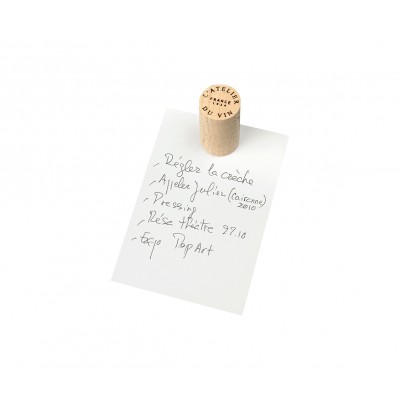 L'ATELIER
FRANCE
DU VIN
- Régler la crèche
- Appeler Julien (Cairanne)
2010
- Pressing
- Résa théâtre 27.10
- Expo Pop Art